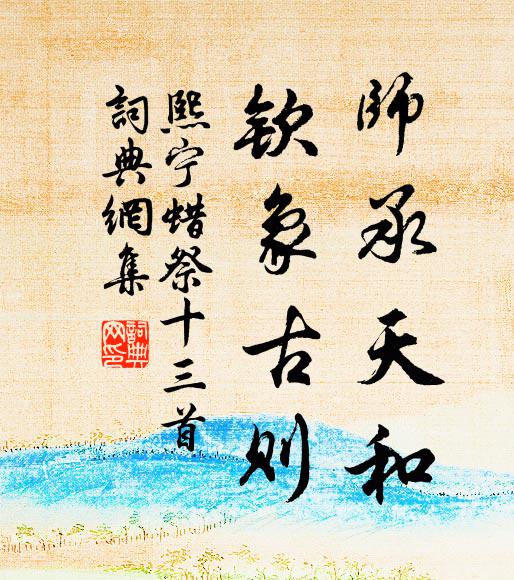 師承天和
欽象古則
熙宁蜡祭十三首
詞典網集
詞典
网印